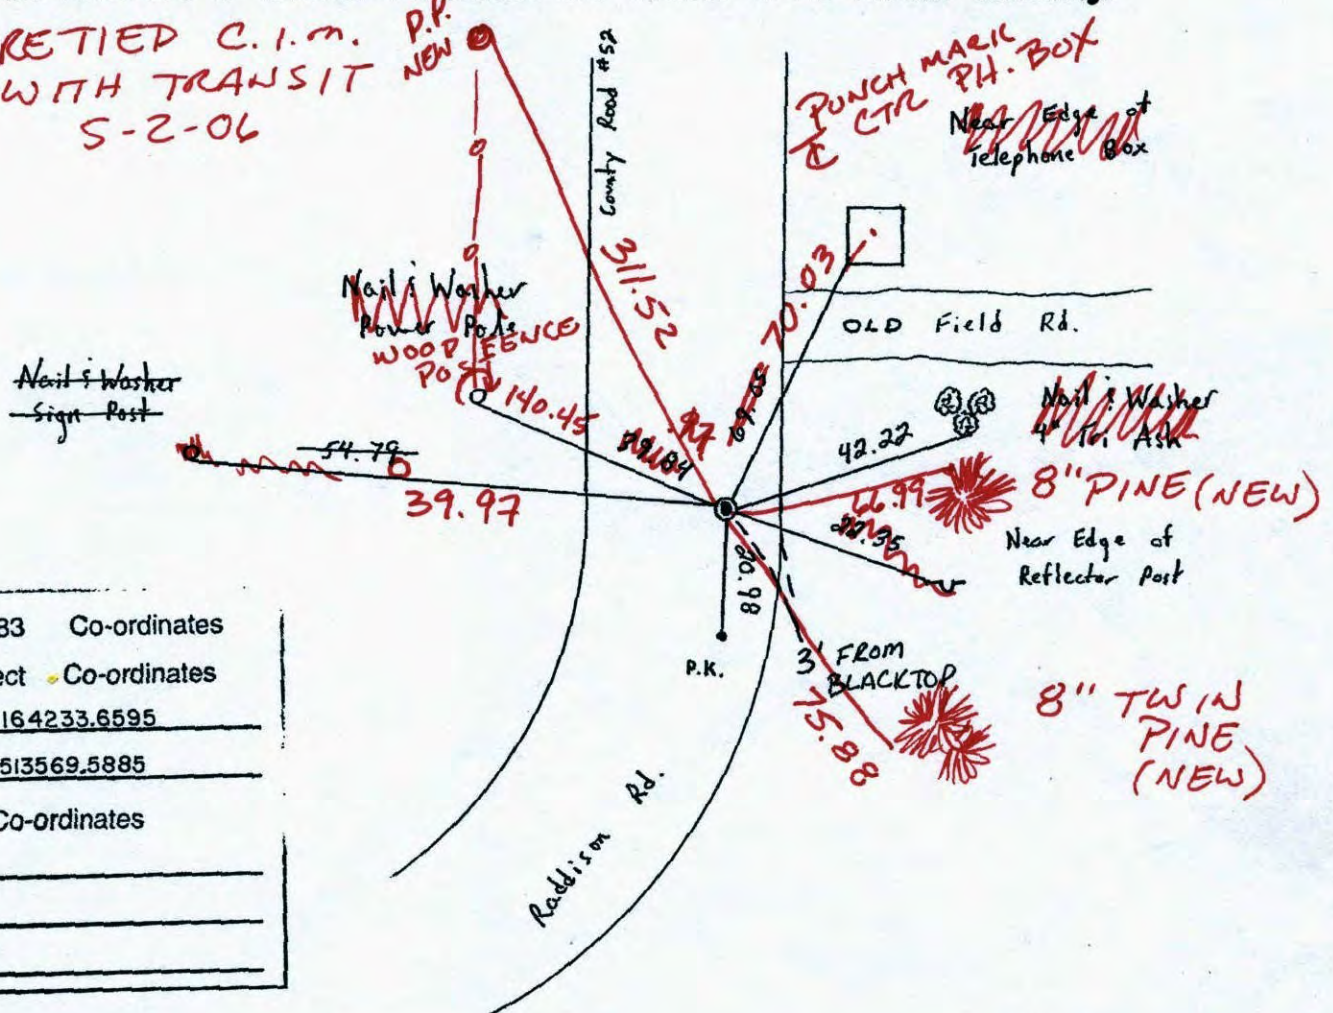 RETIED C.I.M.
WITH TRANSIT
5-2-06
P.P.
NEW
County Road #52
PUNCH MARK
CTR PH. BOX
Near Edge of
Telephone Box
311.52
70.03
Nail & Washer
Power Pole
WOOD FENCE
POST
OLD Field Rd.
Nail & Washer
Sign Post
140.45
54.79
39.97
42.22
Nail & Washer
4" Tri Ash
66.99
8" PINE (NEW)
Near Edge of
Reflector Post
20.98
P.K.
3' FROM
BLACKTOP
75.88
8" TWIN
PINE
(NEW)
Raddison Rd.
83 Co-ordinates
ect Co-ordinates
164233.6595
513569.5885
Co-ordinates